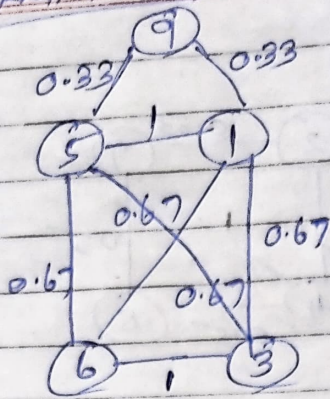 9
0.33 0.33
5 1 1
0.67 0.67
0.67 0.67
6 1 3